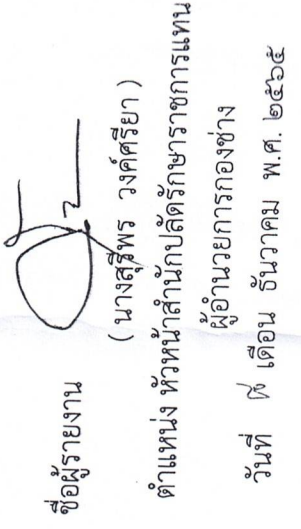 ชื่อผู้รายงาน
( นางสุรีพร วงค์ศรียา )
ตำแหน่ง หัวหน้าสำนักปลัดรักษาราชการแทน
ผู้อำนวยการกองช่าง
วันที่ ๙ เดือน ธันวาคม พ.ศ. ๒๕๖๕